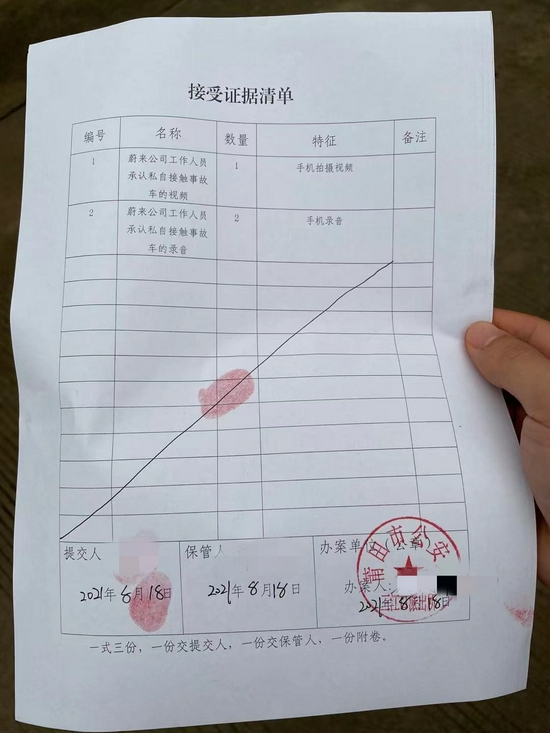 接受证据清单
编号 名称 数量 特征 备注
1 蔚来公司工作人员 1 手机拍摄视频
承认私自接触事故
车的视频
2 蔚来公司工作人员 2 手机录音
承认私自接触事故
车的录音
提交人 保管人 办案单位(公章)
莆田市公安
办案人:
2021年8月18日 2021年8月18日 2021年8月18日
派出所
一式三份,一份交提交人,一份交保管人,一份附卷。